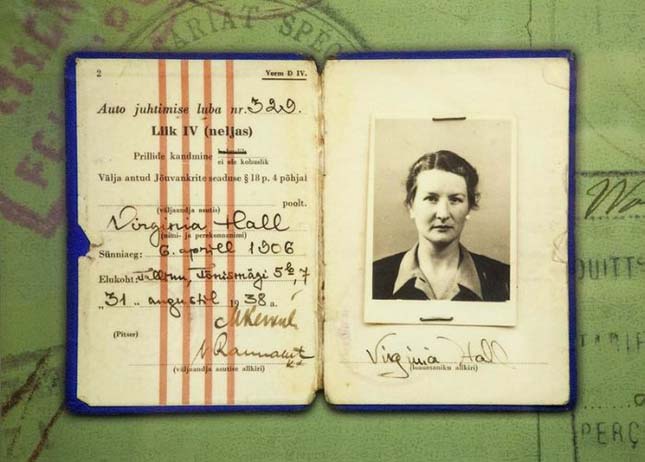 TARIAT SPEC
2 Vorm D IV.
Auto juhtimise luba nr. 329.
Liik IV (neljas)
Prillide kandmine kohuslik
ei ole kohuslik
Välja antud Jõuvankrite seaduse § 18 p. 4 põhjal
poolt.
(väljaandja asutis)
Virginia Hall
(nimi- ja perekonnanimi)
Sünniaeg: 6. aprill 1906
Elukoht: Tallinn, Tõnismägi 5
"31" augustil 1938 a.
(Pitser)
(väljaandja asutise allkiri)
Virginia Hall
(loaomaniku allkiri)
PERÇ